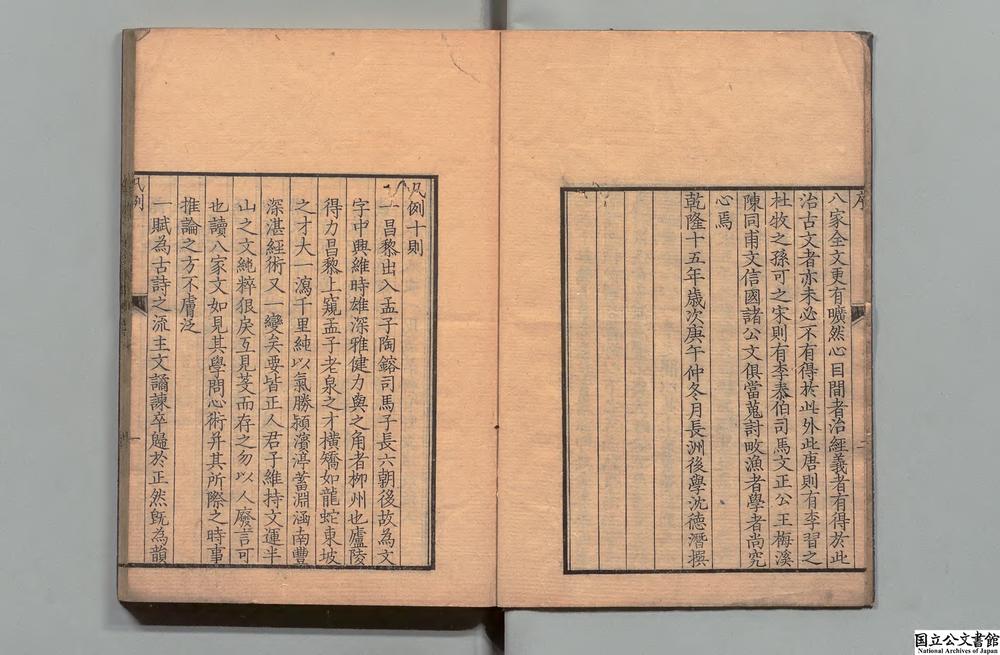 八家全文更有曠然心目間者治經義者有得於此
治古文者亦未必不有得於此外此唐則有李習之
杜牧之孫可之宋則有李泰伯司馬文正公王梅溪
陳同甫文信國諸公文俱當蒐討畋漁者學者尚究
心焉
乾隆十五年歲次庚午仲冬月長洲後學沈德潛撰
序
二
凡例十則
一昌黎出入孟子陶鎔司馬子長六朝後故為文
字中興維時雄深雅健力與之角者柳州也廬陵
得力昌黎上窺孟子老泉之才橫矯如龍蛇東坡
之才大一瀉千里純以氣勝潁濱渟蓄淵涵南豐
深湛經術又一變矣要皆正人君子維持文運半
山之文純粹狠戾互見芟而存之勿以人廢言可
也讀八家文如見其學問心術并其所際之時事
推論之方不膚泛
一賦為古詩之流主文譎諫卒歸於正然既為韻
凡例
一
国立公文書館
National Archives of Japan